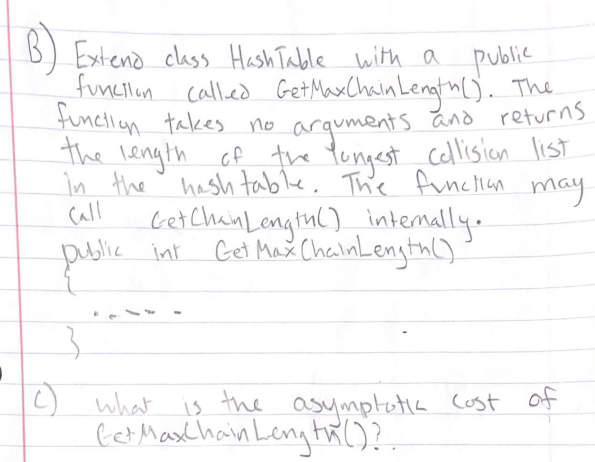 B) Extend class HashTable with a public
function called GetMaxChainLength(). The
function takes no arguments and returns
the length of the longest collision list
in the hash table. The function may
call GetChainLength() internally.
public int GetMaxChainLength()
{
.....
}
C) what is the asymptotic cost of
GetMaxChainLength()?